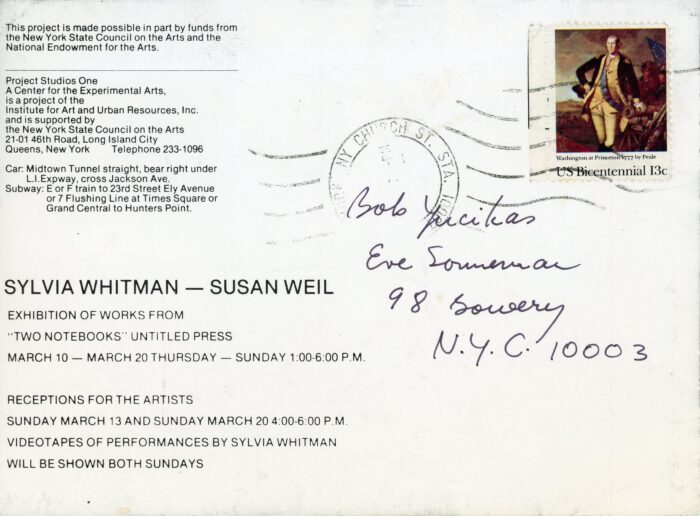 This project is made possible in part by funds from
the New York State Council on the Arts and the
National Endowment for the Arts.
Project Studios One
A Center for the Experimental Arts,
is a project of the
Institute for Art and Urban Resources, Inc.
and is supported by
the New York State Council on the Arts
21-01 46th Road, Long Island City
Queens, New York Telephone 233-1096
Car: Midtown Tunnel straight, bear right under
L.I.Expway, cross Jackson Ave.
Subway: E or F train to 23rd Street Ely Avenue
or 7 Flushing Line at Times Square or
Grand Central to Hunters Point.
Washington at Princeton 1777 by Peale
US Bicentennial 13c
NY CHURCH ST. STA.
Bob
Eve Sonneman
98 Bowery
N.Y.C. 10003
SYLVIA WHITMAN — SUSAN WEIL
EXHIBITION OF WORKS FROM
"TWO NOTEBOOKS" UNTITLED PRESS
MARCH 10 — MARCH 20 THURSDAY — SUNDAY 1:00-6:00 P.M.
RECEPTIONS FOR THE ARTISTS
SUNDAY MARCH 13 AND SUNDAY MARCH 20 4:00-6:00 P.M.
VIDEOTAPES OF PERFORMANCES BY SYLVIA WHITMAN
WILL BE SHOWN BOTH SUNDAYS